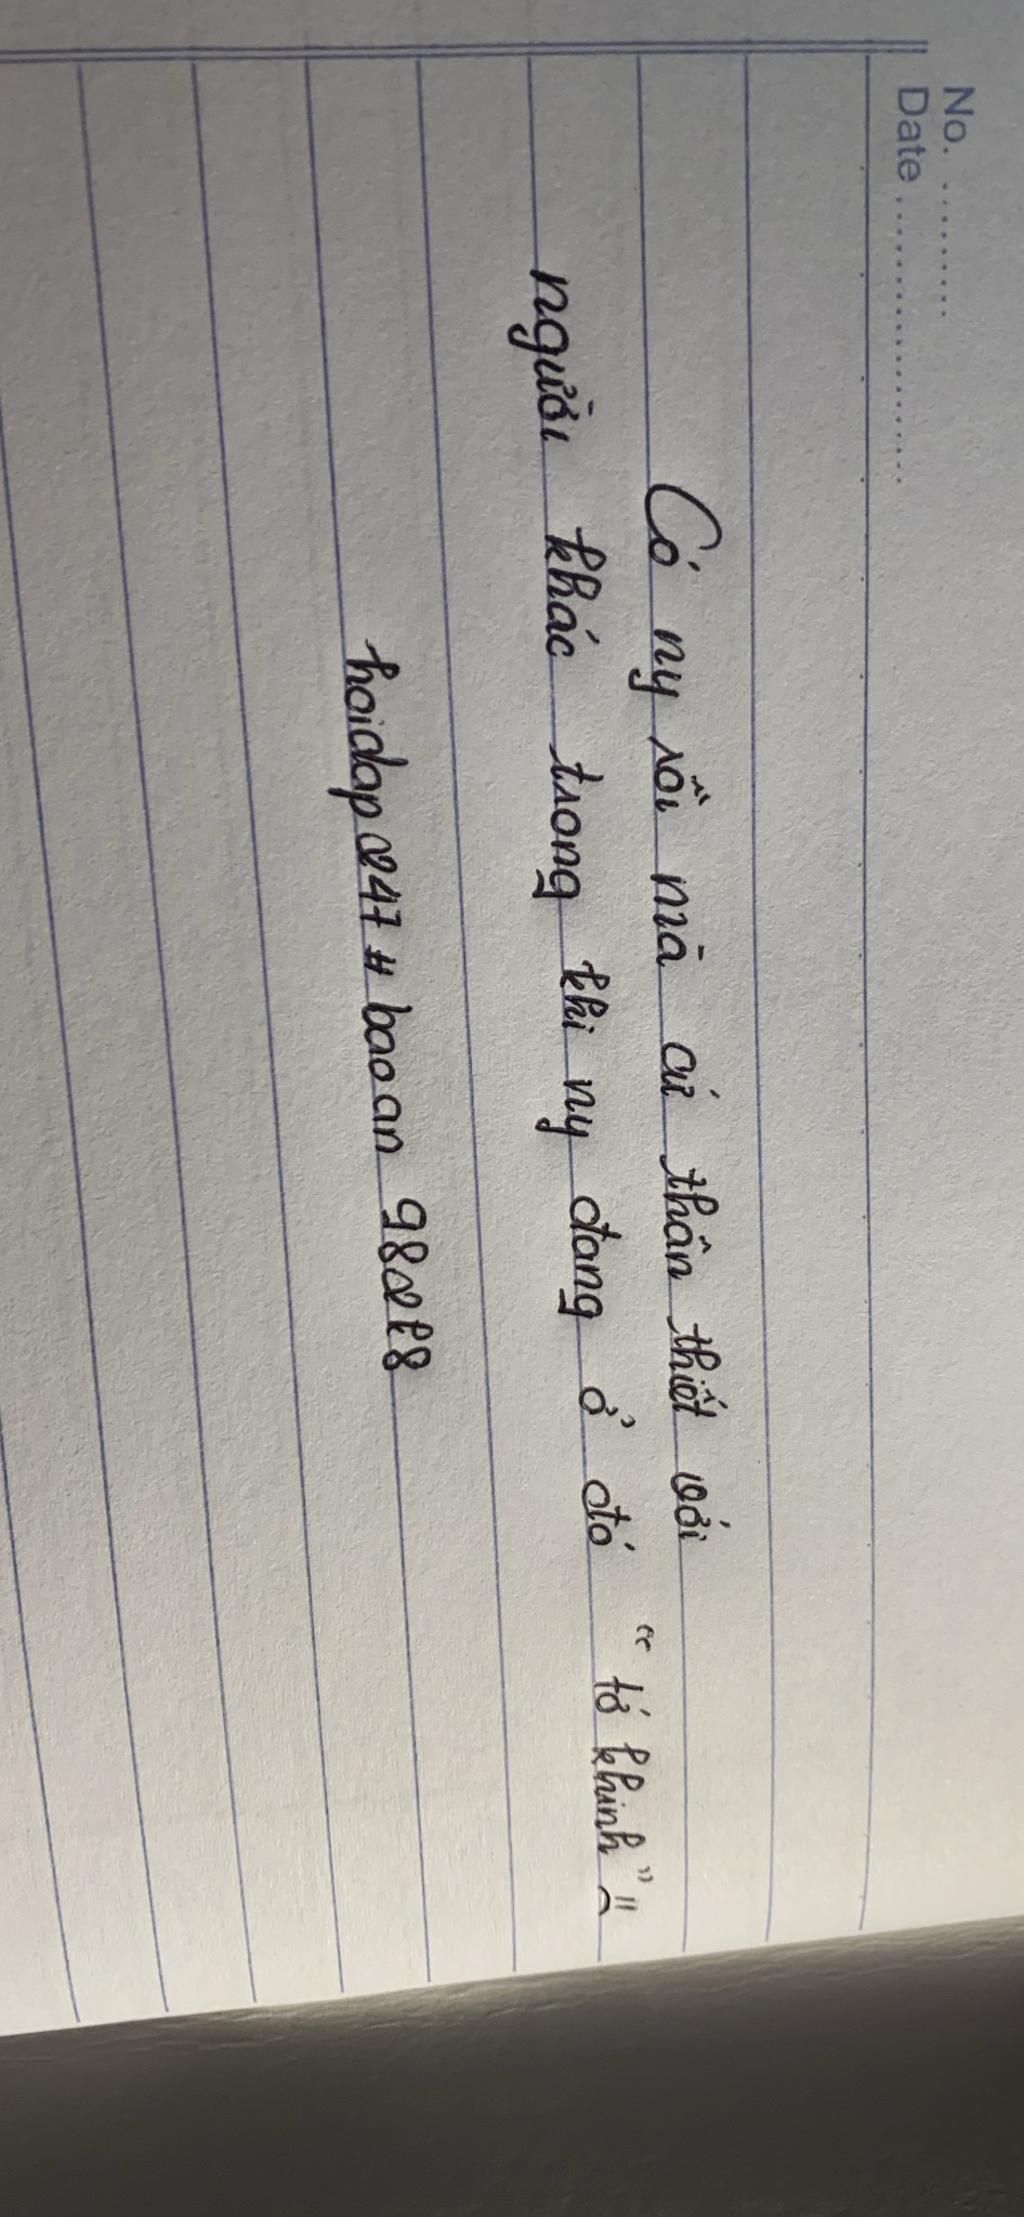 No. .........
Date ........................
Có ny rồi mà cứ thân thiết với
người khác trong khi ny đang ở đó “tớ khinh” :(
hoidap247 # baoan 982k8